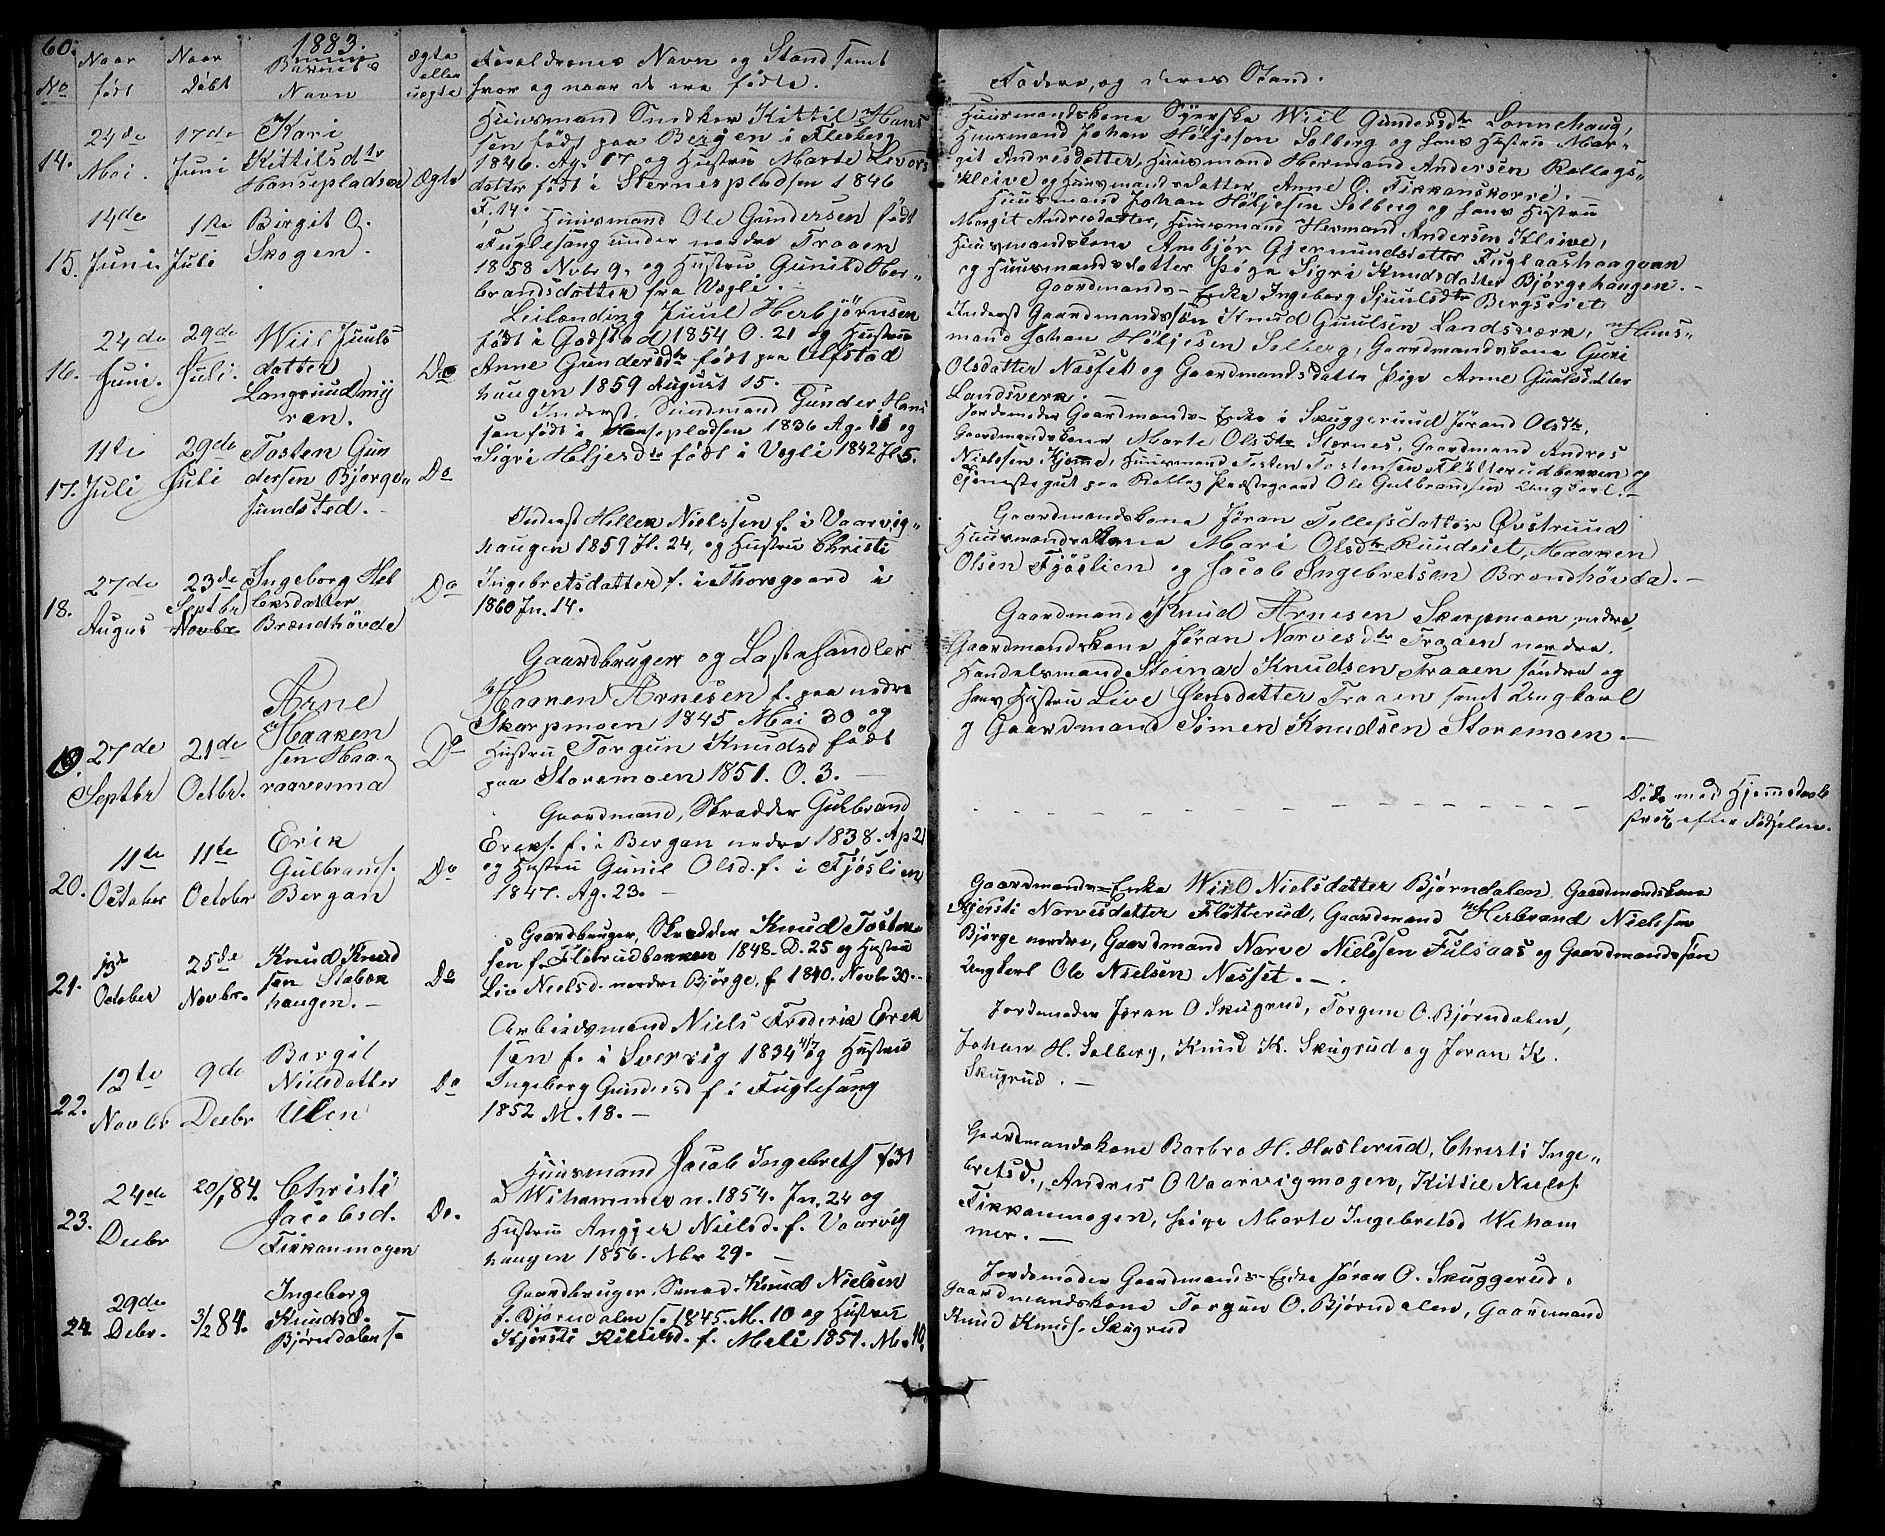 60.
1883.
No
Naar født
Naar Døbt
Barnets Navn
Ægte eller uægte
Forældrenes Navn og Stand samt
hvor og naar de ere fødte.
Faddere, og deres Stand.
14.
24de Mai.
17de Juni
Kari
Kittilsdtr
Hansepladsen
Ægte
Huusmand Snedker Kittil Hans
sen født paa Bergen i Flesberg
1846. Ag. 17 og Hustru Marte Levors
datter født i Sternespladsen 1846
F. 14.
Huusmandskone Syerske Wiil Gundersdtr Sonnehaug,
Huusmand Johan Höljeson Solberg og hans Hustru Mar-
git Andresdatter, Huusmand Hermand Andersen Rollags-
kleive og Huusmandsdatter Anne O. Fikkanskorve.
15.
14de Juni
1ste Juli
Birgit O.
Skogen.
Huusmand Ole Gundersen født
Fuglesang under nordre Traaen
1858 Novbr 9, og Hustru Gunild Her-
brandsdatter fra Vegli.
Huusmand Johan Höljesen Solberg og hans Hustru
Margit Andresdatter, Huusmand Hermand Andersen Kleive,
Huusmandskone Ambjør Gjermundsdatter Fuglaashaagaan
og Huusmandsdatter Pige Sigri Knudsdatter Bjørgehaugen.
16.
24de Juni.
29de Juli.
Wiil Juuls
datter
Langruudmy
ren.
Do
Leilænding Juul Herbjørnsen
født i Godstad 1854 O. 21 og Hustru
Anne Gundersdtr født paa Ulfstad
haugen 1859 August 15.
Gaardmands-Enke Ingeborg Sjuulsdtr Bergseiet
Inderst Gaardmandssøn Knud Guulsen Landsværk, Huus-
mand Johan Höljesen Solberg, Gaardmandskone Guri
Olsdatter Næsset og Gaardmandsdatter Pige Anne Guulsdatter
Landsverk.
17.
11te Juli
29de Juli
Tosten Gun
dersen Bjørge-
hundsted.
Do
Inderst, Sundmand Gunder Hans
søn født i Hansepladsen 1836 Ag. 11 og
Sigri Heljesdtr født i Vegli 1842 Jl 5.
Jordemoder Gaardmands-Enke i Skuggeruud Jørand Olsdtr,
Gaardmandskone Marte Olsdtr Stærnes, Gaardmand Andres
Nielssen Kjomme, Huusmand Tosten Tostensen Fløtterudbækken og
Tjenestegut paa Rollag Præstegaard Ole Gulbrandsen Ungkarl.
18.
27de Augus
23de Septbr
Novbr
Ingeborg Hel
leksdatter
Brændhövde
Do
Inderst Hellek Nielssen f. i Vaarvig-
haugen 1859 Jl. 24, og Hustru Christi
Ingebretsdatter f. i Thorsgaard i
1860 Jn. 14.
Gaardmandskone Jøran Tollefsdatter Øvstruud
Huusmandskone Mari Olsdtr Ruudeiet, Haaken
Olsen Fjøslien og Jacob Ingebretsen Brændhövda.
19.
27de Septbr
21de Octbr.
Arne
Haaken
sen Haa-
raavemma
Do
Gaardbruger og Lastehandler
Haaken Arnesen f. paa nedre
Skarpmoen 1845 Mai 30 og
Hustru Torgun Knudsd født
paa Storemoen 1851. O. 3.
Gaardmand Knud Arnesen Skarpmoen nedre,
Gaardmandskone Jøran Narvesdtr Traaen nordre.
Handelsmand Steinar Knudsen Traaen søndre og
hans Hustru Live Jensdatter Traaen samt Ungkarl
g Gaardmand Simen Knudsen Storemoen.
20.
11te October
11te October
Erik
Gulbrands.
Bergan
Do
Gaardmand, Skrædder Gulbrand
Ereks. f. i Bergan nedre 1838. Ap 21
og Hustru Gunil Olsd. f. i Fjøslien
1847. Ag. 23.
Døbt med Hjemmedaab
strax efter Fødselen.
21.
October
25de Novbr.
Knud Knud
sen Stabæk
haugen.
Do
Gaardbruger, Skrædder Knud Tosten-
sen f. Fløtrudbækken 1848. D. 25 og Hustru
Liv Nielsd. nordre Bjørge, f 1840. Novbr 30.
Gaardmands-Enke Wiil Nielsdatter Bjørndalen, Gaardmandskone
Kjersti Narvesdatter Fløtterud, Gaardmand Herbrand Nielssen
Bjørge nordre, Gaardmand Narve Nielssen Fulsaas og Gaardmandssøn
Ungkarl Ole Nielsen Nesset.
22.
12te Novbr
9de Decbr
Bergit
Nielsdatter
Ulen
Do
Arbeidsmand Niels Frederik Erek
sen f. i Svervig 1834 11/7 og Hustru
Ingeborg Gundersd f i Fuglesang
1852 M. 18.
Jordemoder Jøran O Skugrud, Torgun O. Bjørndalen,
Johan H. Solberg, Knud K. Skugrud og Jøran K.
Skugrud.
23.
24de Decbr
20/1 84.
Christi
Jacobsd.
Fikkanmogen
Do.
Huusmand Jacob Ingebrets født
Wihammeren. 1854. Jn. 24 og
Hustru Angjer Nielsd. f. Vaarvig
haugen 1856. Nbr 29.
Gaardmandskone Barbro H. Haslerud, Christi Inge-
bretsd., Andres O Vaarvigmogen, Kittil Nielsf
Fikkanmogen, Pige Marte Ingebretsd Weham
mer.
24.
29de Decbr.
3/2 84.
Ingeborg
Knudsd.
Bjørndalen
Gaardbruger, Smed Knud Nielsen
f. Bjørndalen 1845. M. 10 og Hustru
Kjersti Kittilsd. f. Meli 1851. M. 19.
Jordemoder Gaardmands-Enke Jøran O. Skuggerud,
Gaardmandskone Torgun O. Bjørndalen, Gaardmand
Knud Knuds. Skugrud